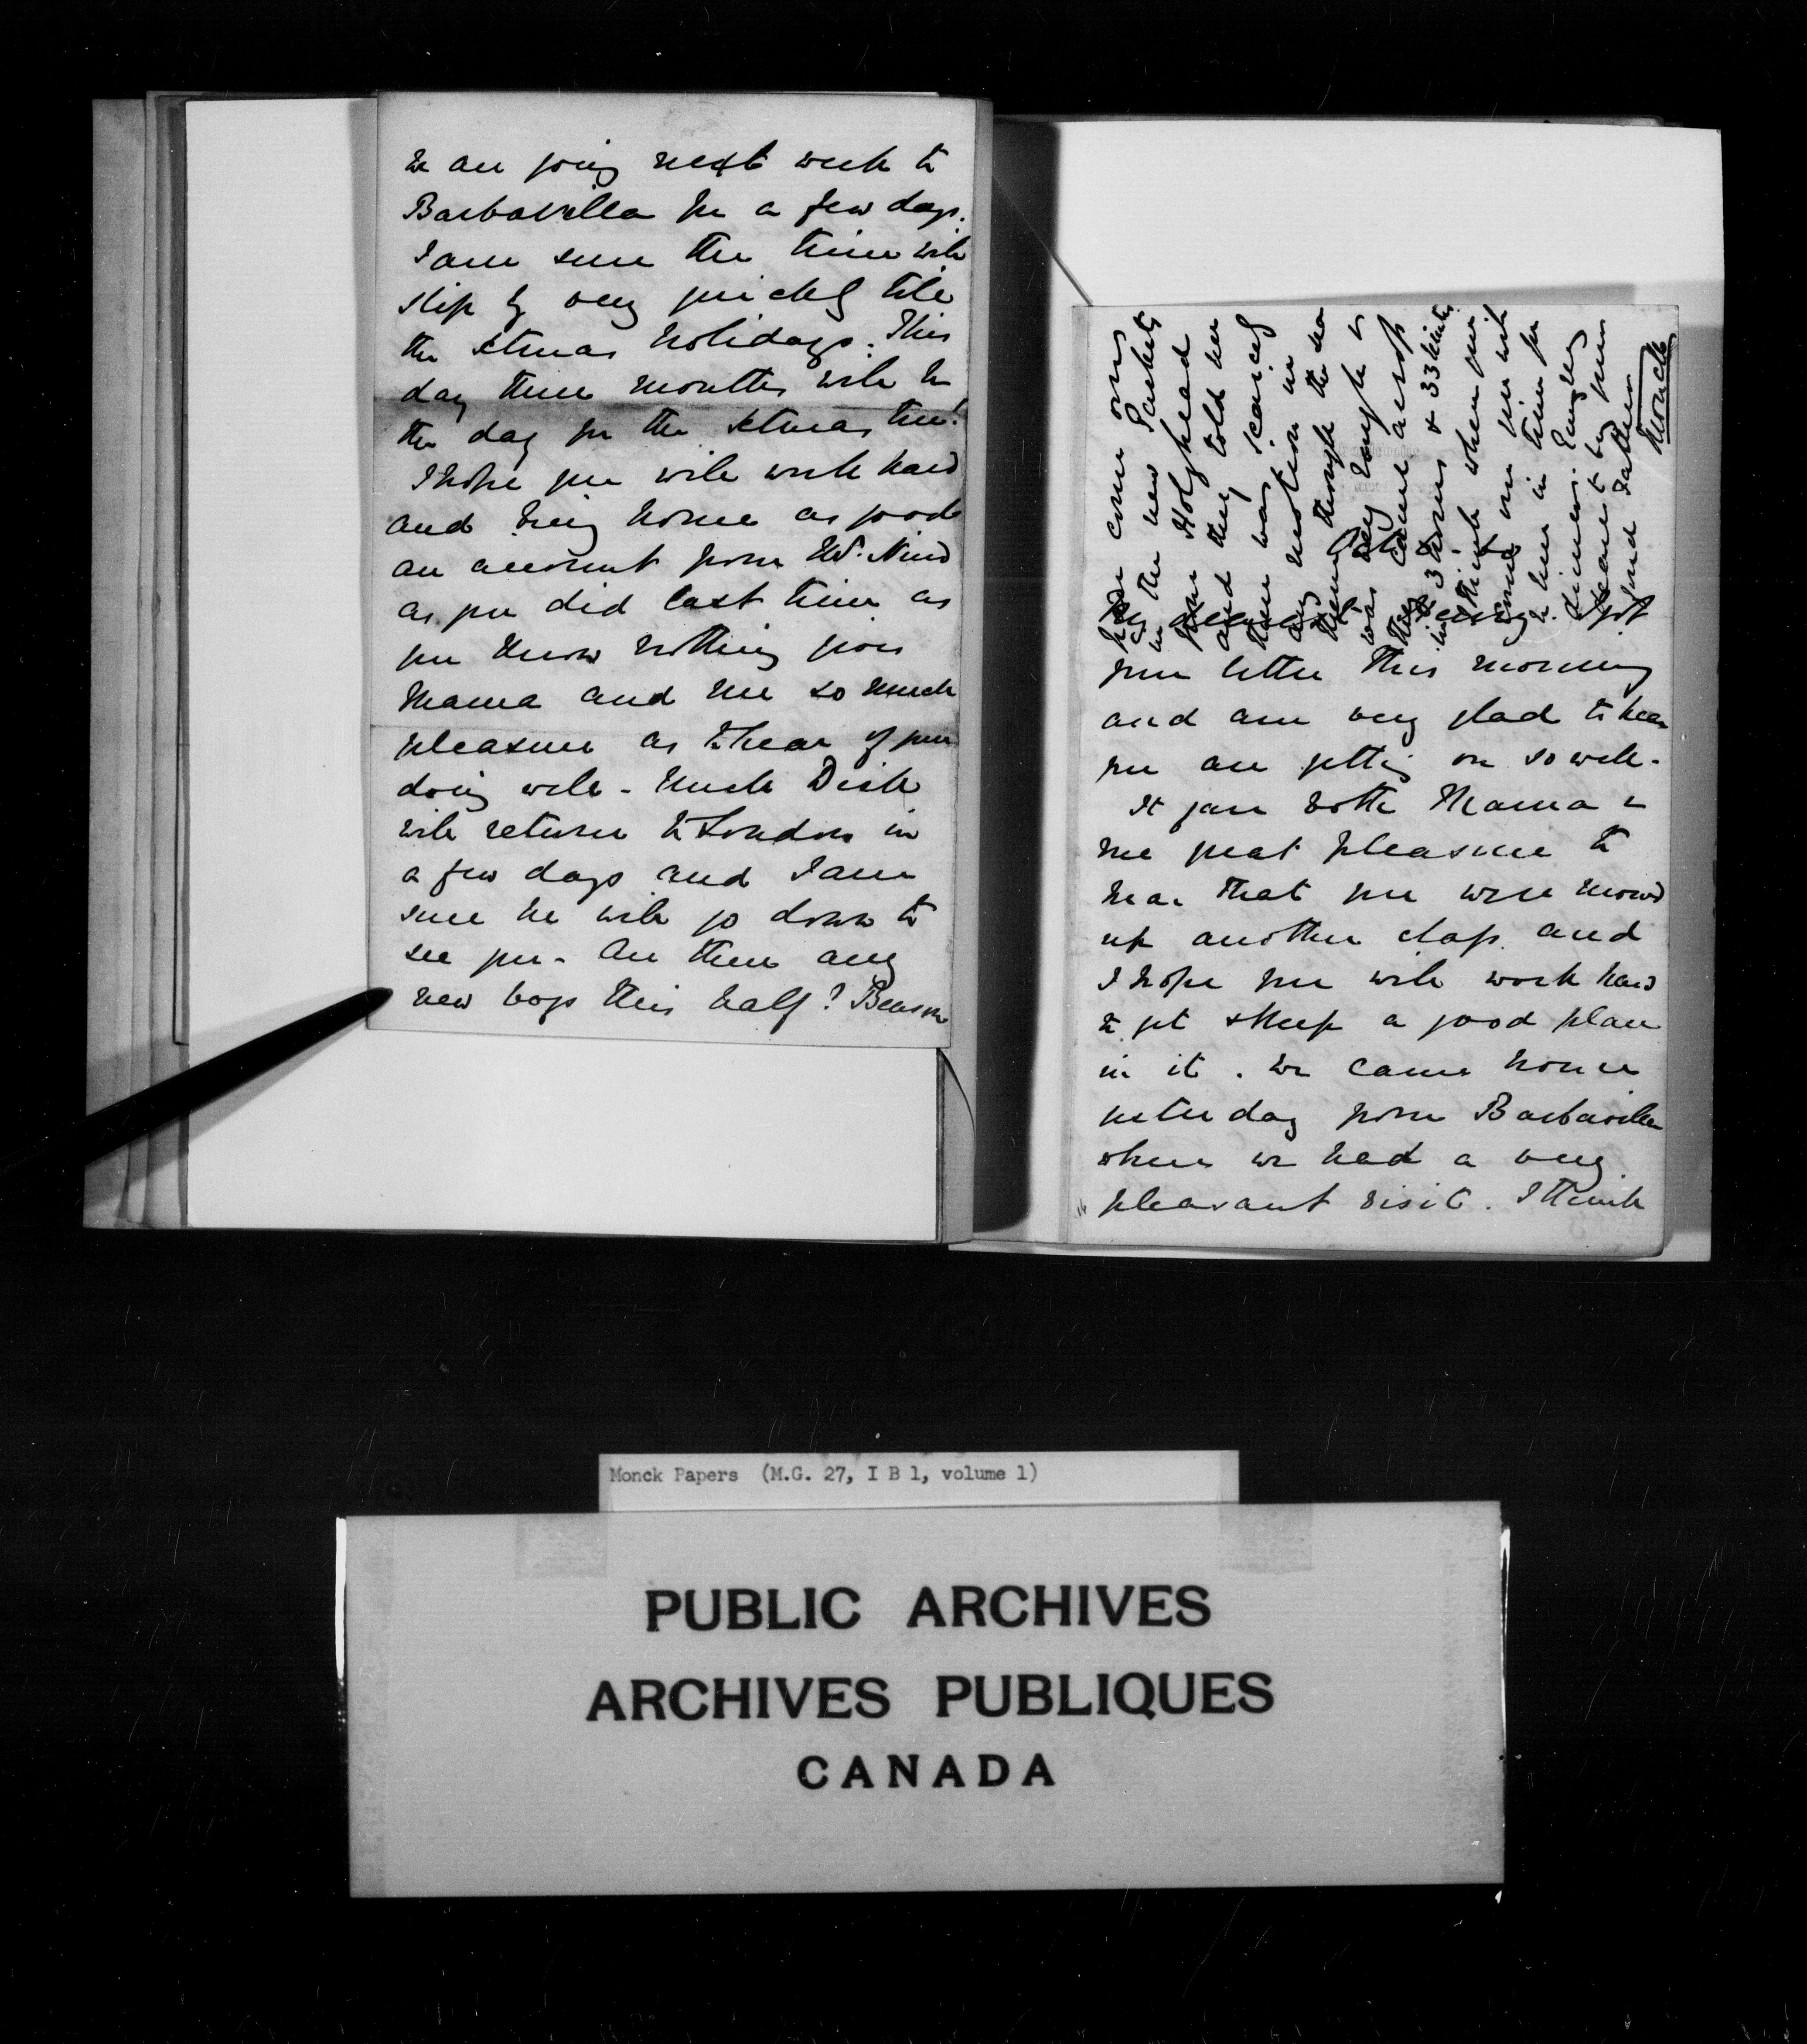 We are going next week to
Barbavilla for a few days.
I am sure the time will
slip by very quickly till
the Xtmas holidays. This
day three months will be
the day for the Xtmas tree!
I hope you will work hard
and bring home as good
an account from Mr. Nind
as you did last time as
you know nothing gives
Mama and me so much
pleasure as to hear of your
doing well - Uncle Dick
will return to London in
a few days and I am
sure he will go down to
see you - Are there any
new boys this half? Benson
come over
in the new Packets
from Holyhead
and they told me
there was scarcely
any motion in
them though the sea
was very rough &
they came across
in 3 hours & 33 minutes
think when you
come over you will
be here in time for
dinner. Ever my
dearest boy your
fond Father
Monck
My dearest Henry I got
your letter this morning
and am very glad to hear
you are getting on so well -
It gave both Mama &
me great pleasure to
hear that you were moved
up another class and
I hope you will work hard
to get & keep a good place
in it. We came home
yesterday from Barbavilla
where we had a very
pleasant visit. I think
Monck Papers (M.G. 27, I B 1, volume 1)
PUBLIC ARCHIVES
ARCHIVES PUBLIQUES
CANADA